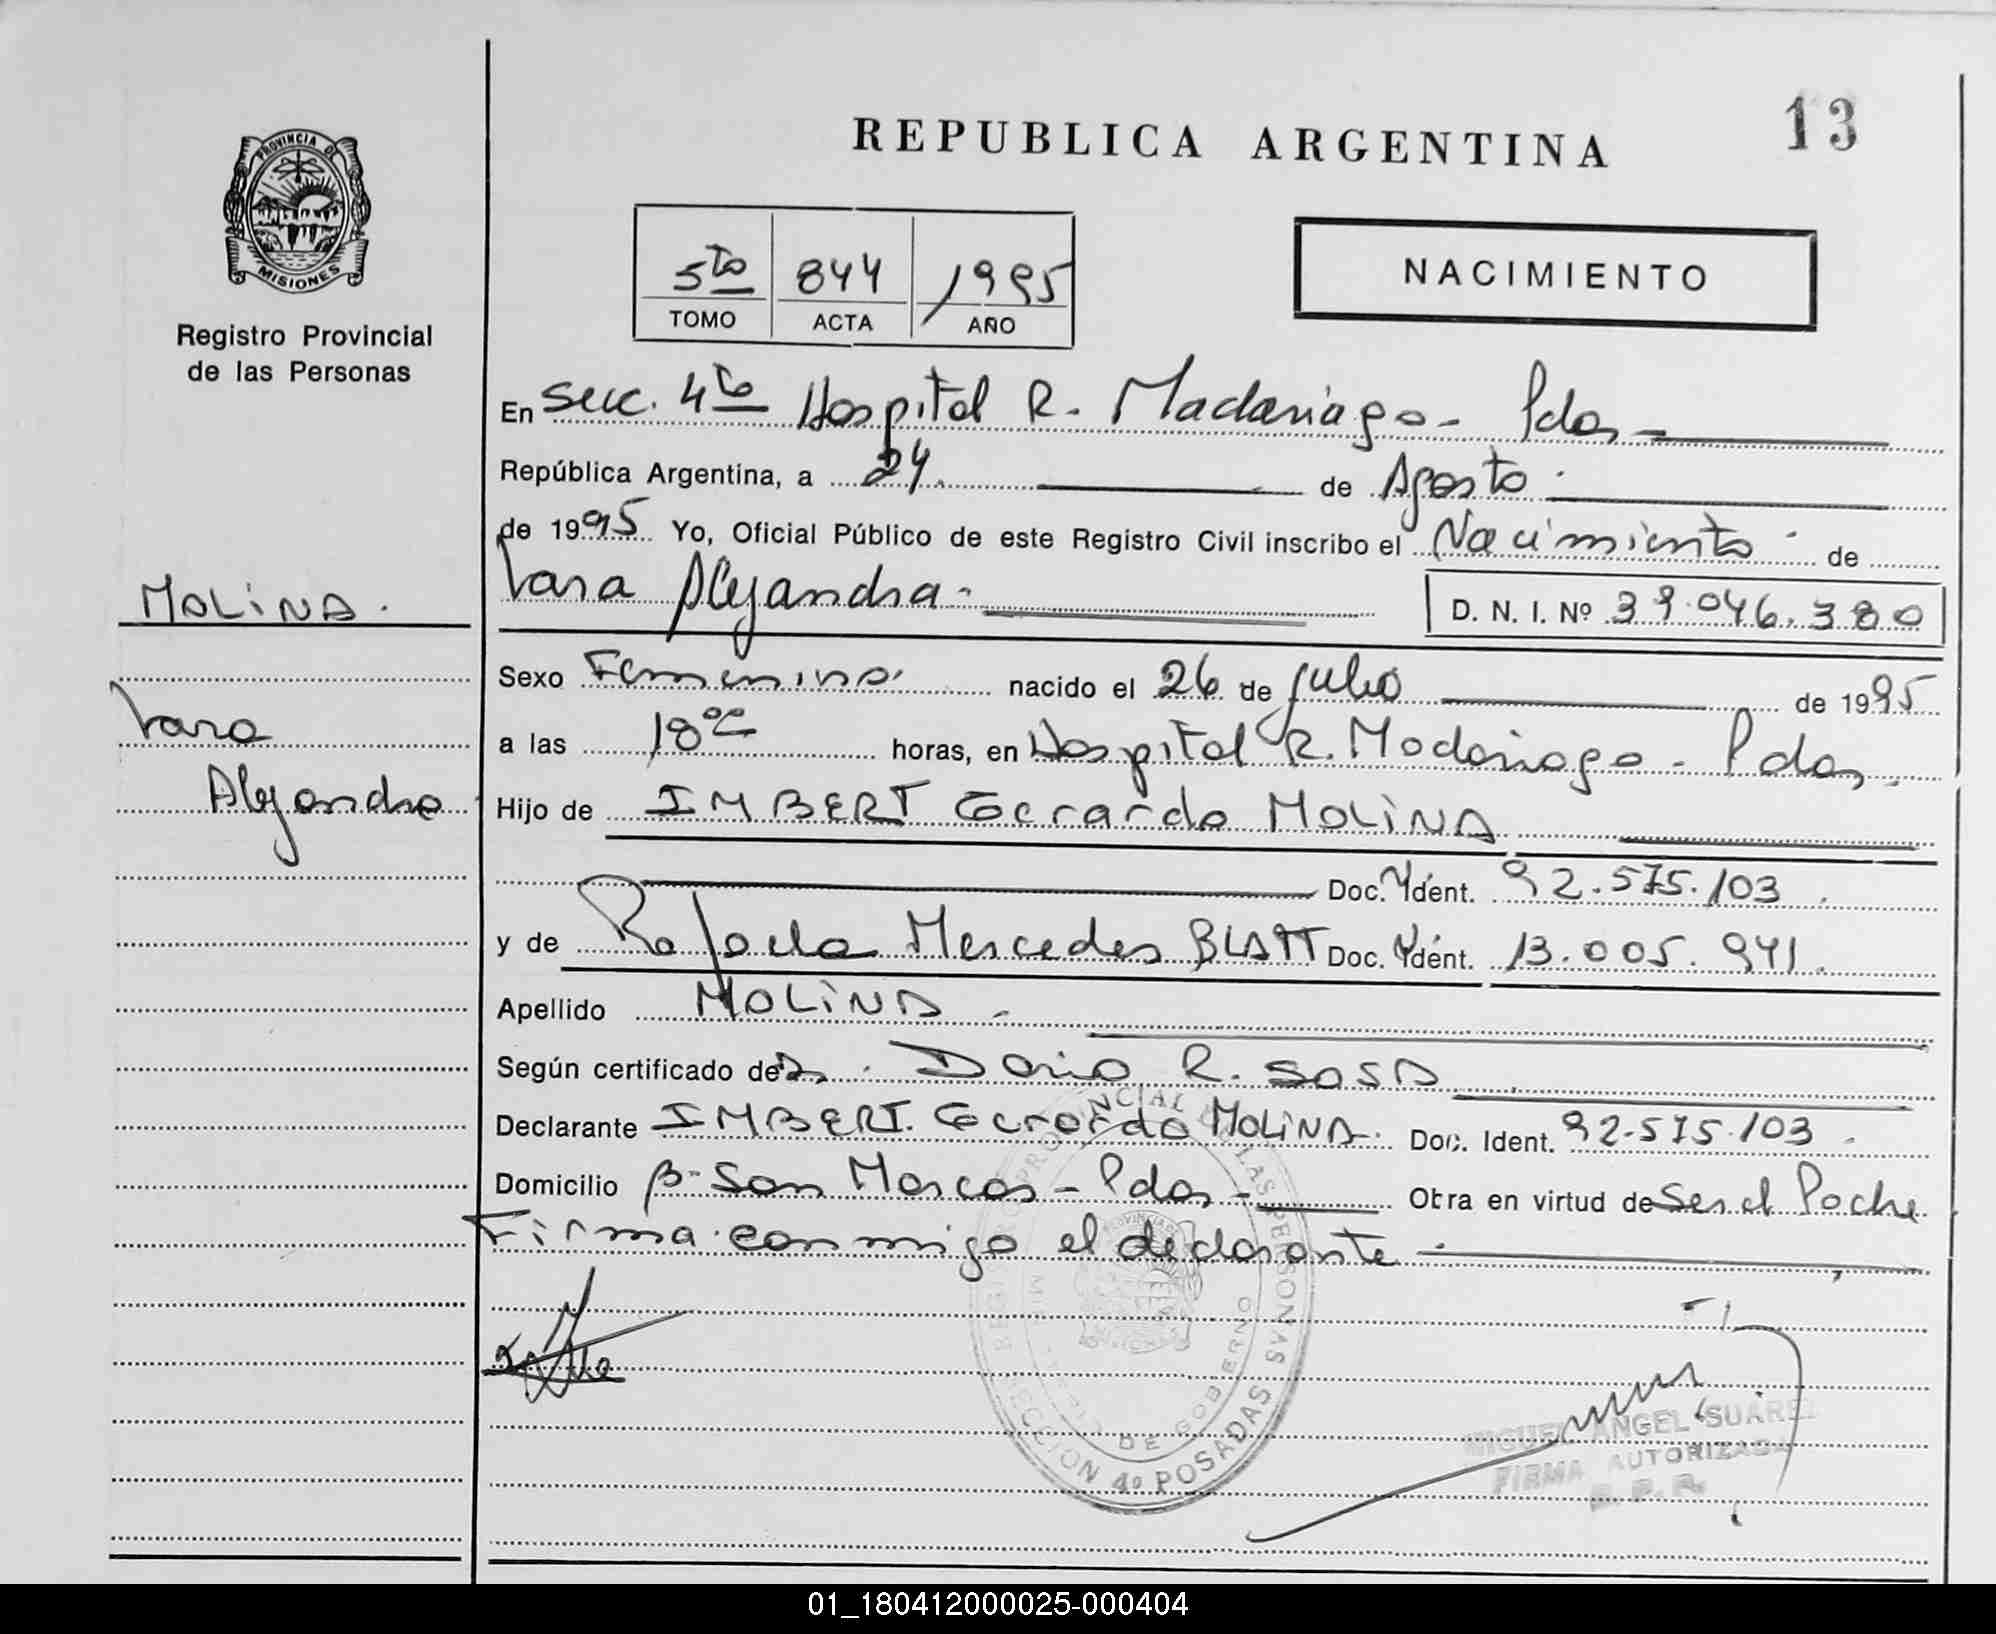 13
REPUBLICA ARGENTINA
PROVINCIA DE
MISIONES
Registro Provincial
de las Personas
5to 844 1995
TOMO ACTA AÑO
NACIMIENTO
En Secc. 4ta Hospital R. Madariaga - Pdas -
República Argentina, a 24 de Agosto
de 1995 Yo, Oficial Público de este Registro Civil inscribo el Nacimiento de
Yara Alejandra - D. N. I. Nº 39.046.380
MOLINA.
Yara
Alejandra
Sexo Femenino nacido el 26 de julio de 1995
a las 18 horas, en Hospital R. Madariaga - Pdas.
Hijo de IMBERT Gerardo MOLINA
Doc. Ydent. 92.575.103
y de Rafaela Mercedes BLATT Doc. Ydent. 13.005.941.
Apellido MOLINA -
Según certificado de Dario R. SOSA
Declarante IMBERT. Gerardo MOLINA. Doc. Ident. 92.575.103.
Domicilio Bº San Marcos - Pdas - Otra en virtud de Ser el Padre
Firma conmigo el declarante
REGISTRO PROVINCIAL DE LAS PERSONAS
DE GOBIERNO
SECCION 4º POSADAS
MIGUEL ANGEL SUAREZ
FIRMA AUTORIZADA
R. P. P.
01_180412000025-000404